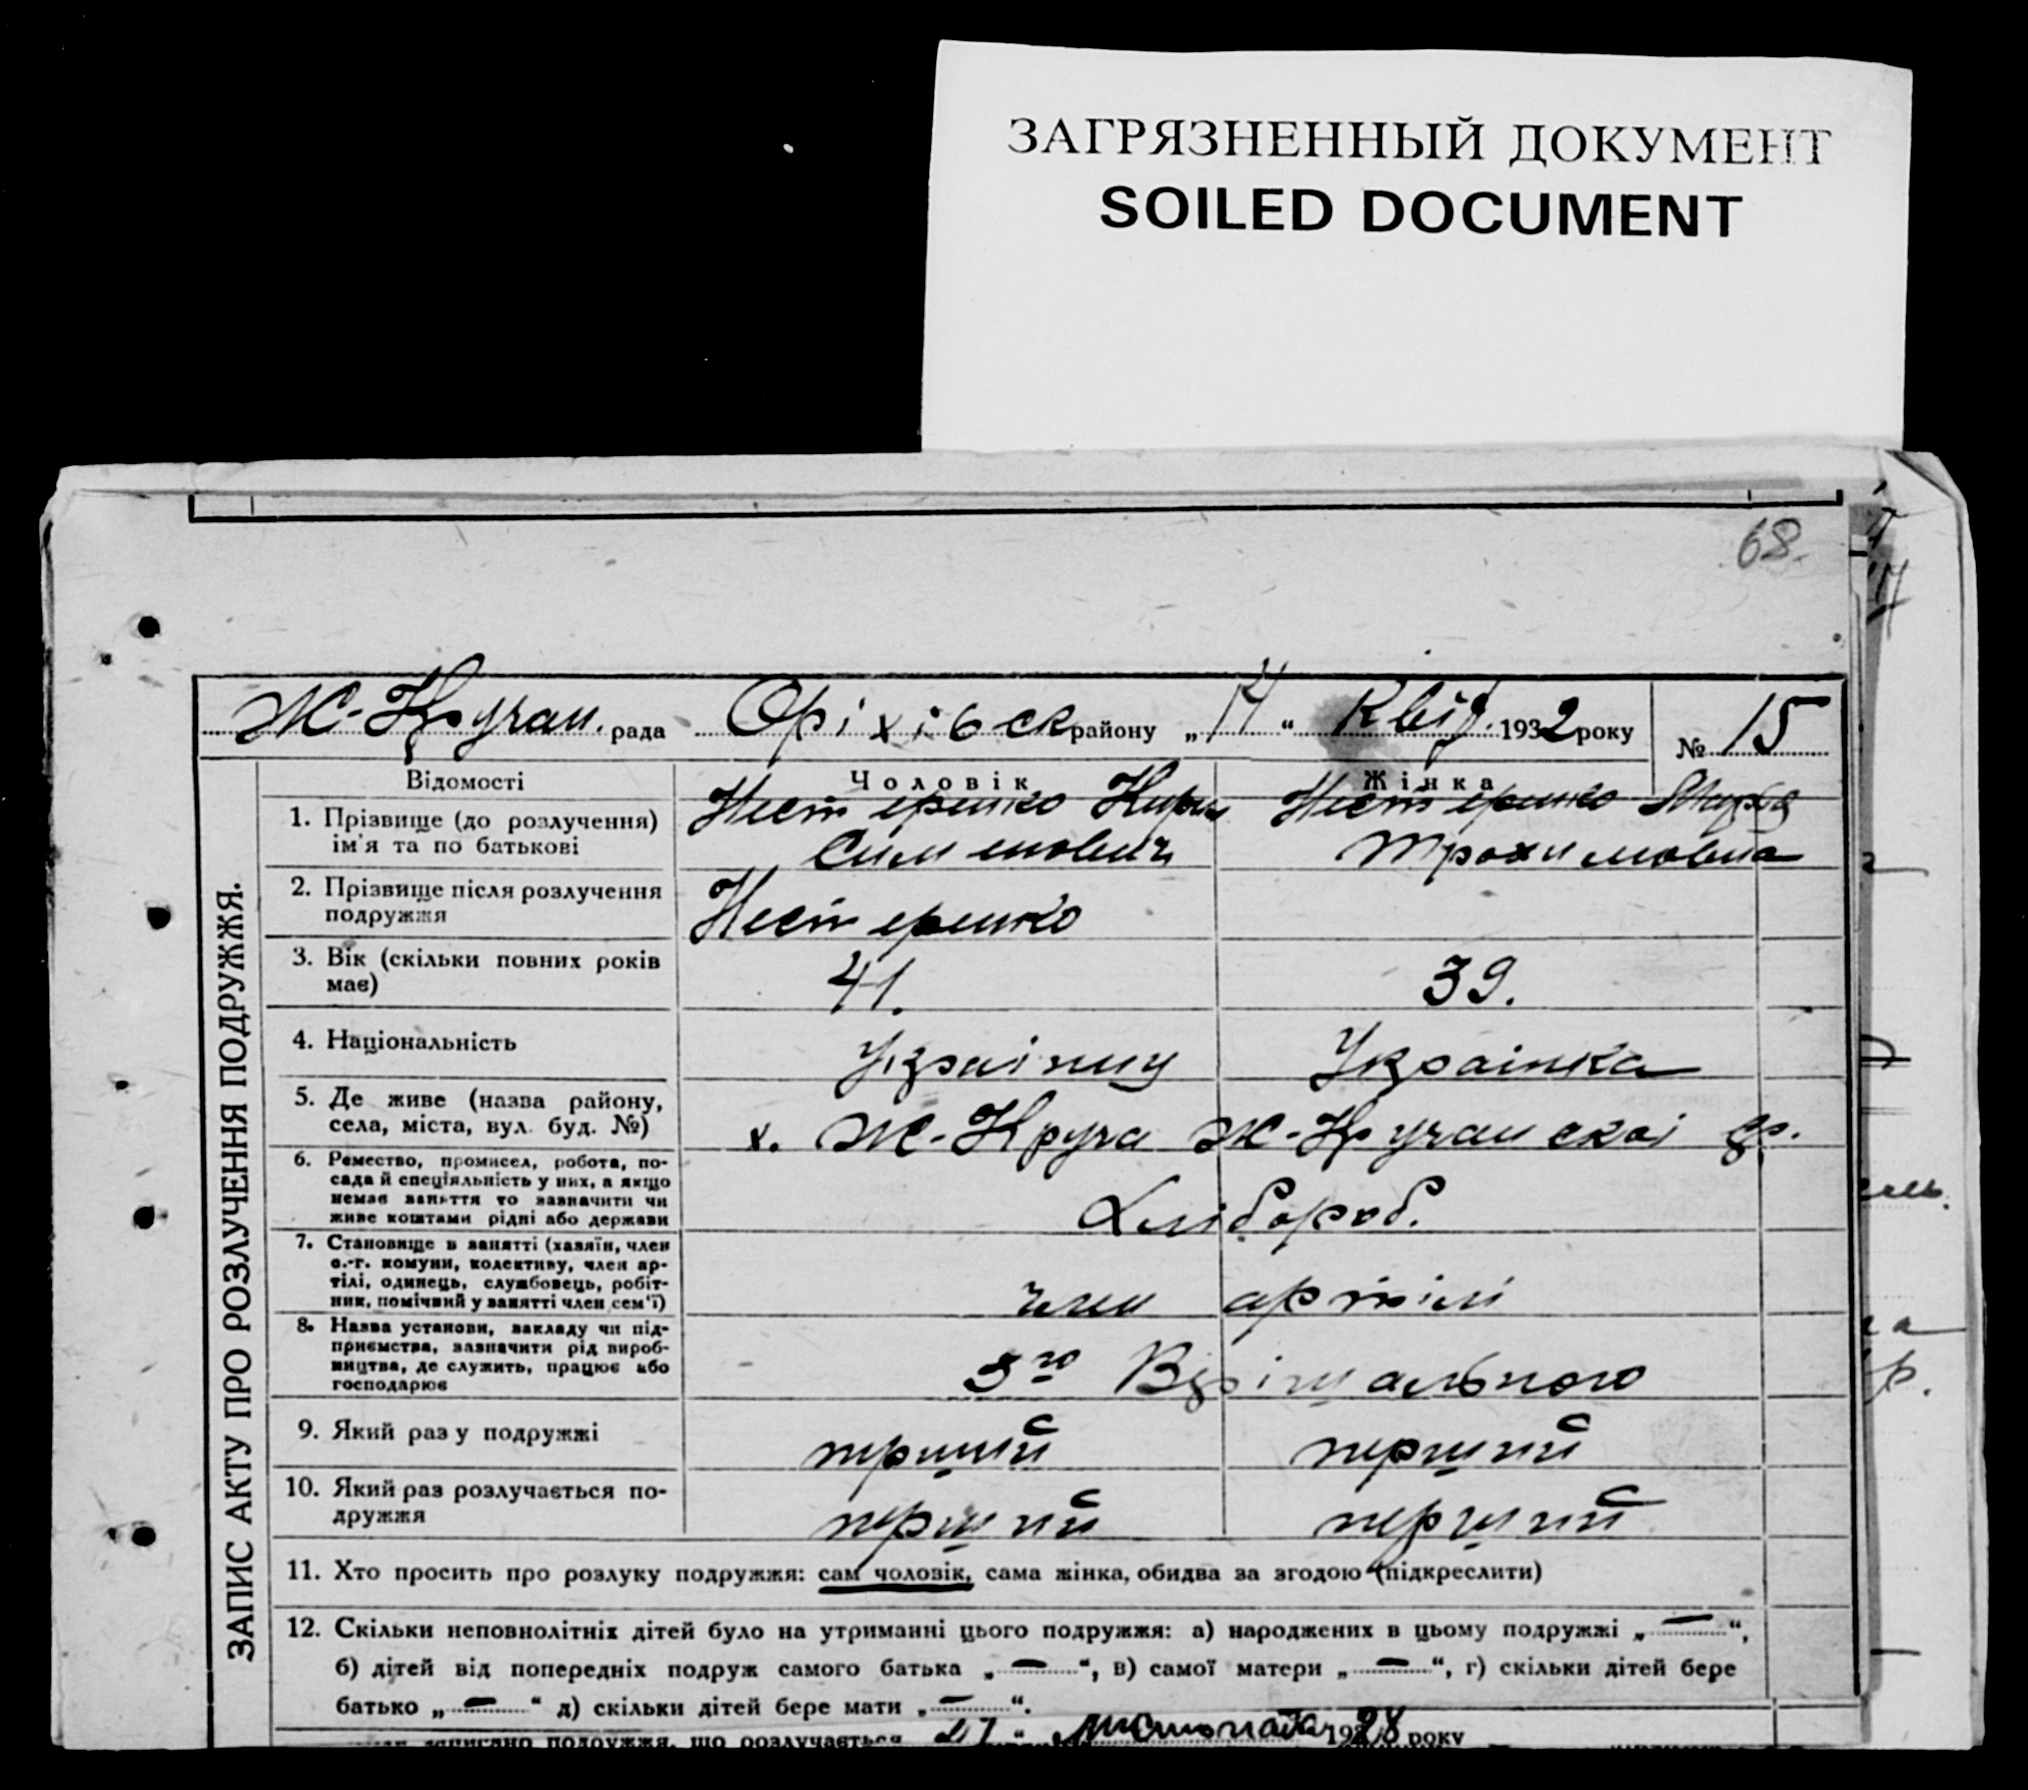 ЗАГРЯЗНЕННЫЙ ДОКУМЕНТ
SOILED DOCUMENT
68.
Ж-Кручан. рада Оріхівск району „14“ Квіт. 1932 року № 15
ЗАПИС АКТУ ПРО РОЗЛУЧЕННЯ ПОДРУЖЖЯ.
Відомості Чоловік Жінка
1. Прізвище (до розлучення) ім'я та по батькові
Нестеренко Кирил
Симонович
Нестеренко
Трохимовна
2. Прізвище після розлучення подружжя
Нестеренко
3. Вік (скільки повних років має)
41. 39.
4. Національність
Українец Украінка
5. Де живе (назва району, села, міста, вул. буд. №)
х. Ж-Круча Ж-Кручанскоі
6. Ремество, промисел, робота, посада й спеціяльність у них, а якщо немає заняття то зазначити чи живе коштами рідні або держави
Хлібороб.
7. Становище в занятті (хазяїн, член с.-г. комуни, колективу, член артілі, одинець, службовець, робітник, помічний у занятті член сем'ї)
член артілі
8. Назва установи, закладу чи підприємства, зазначити рід виробництва, де служить, працює або господарює
3го Вірішального
9. Який раз у подружжі
перший перший
10. Який раз розлучається подружжя
перший перший
11. Хто просить про розлуку подружжя: сам чоловік, сама жінка, обидва за згодою (підкреслити)
12. Скільки неповнолітніх дітей було на утриманні цього подружжя: а) народжених в цьому подружжі „—“,
б) дітей від попередніх подруж самого батька „—“, в) самої матери „—“, г) скільки дітей бере
батько „—“ д) скільки дітей бере мати „—“.
записано подружжя, що розлучається 27 “ листопада 1928 року